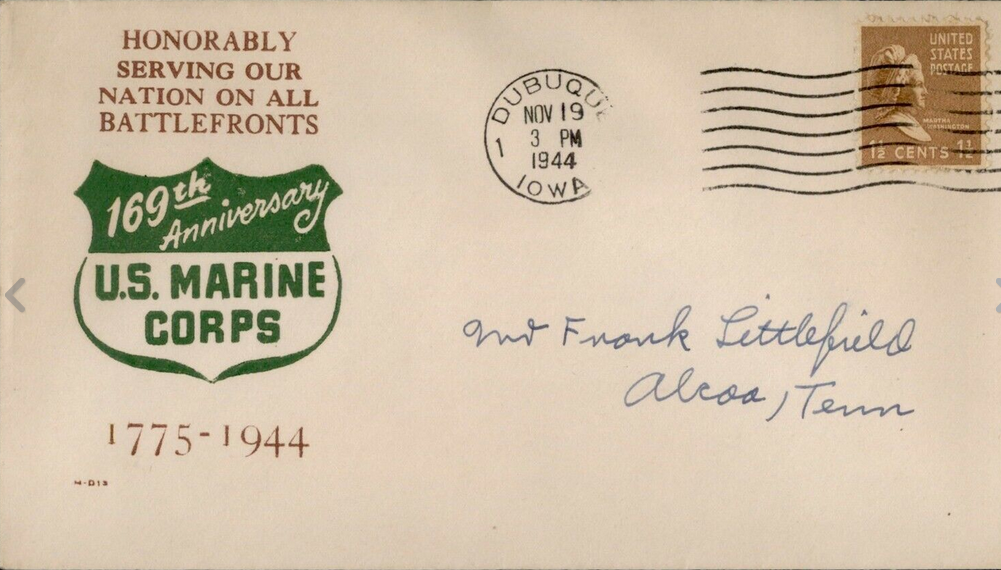 HONORABLY
SERVING OUR
NATION ON ALL
BATTLEFRONTS
169th
Anniversary
U.S. MARINE
CORPS
1775-1944
M-D13
DUBUQUE
NOV 19
3 PM
1944
1
IOWA
UNITED
STATES
POSTAGE
MARTHA
WASHINGTON
1½ CENTS 1½
Frank Littlefield
Alcoa, Tenn